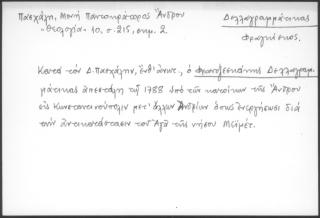 Πασχάλη, Μονή Παντοκράτορος Ἄνδρου
"Θεολογία" 10, σ. 215, σημ. 2.
Δελλαγραμμάτικας
Φραγκίσκος.
Κατά τόν Δ. Πασχάλην, ἔνθ' ἄνωτ., ὁ Φραγκίσκος Δελλαγραμ-
μάτικας ἀπεστάλη τῷ 1788 ὑπό τῶν κατοίκων τῆς Ἄνδρου
εἰς Κωνσταντινούπολιν μετ' ἄλλων Ἀνδρίων ὅπως ἐνεργήσωσι διά
τήν ἀντικατάστασιν τοῦ Ἀγᾶ τῆς νήσου Μεϊμέτ.